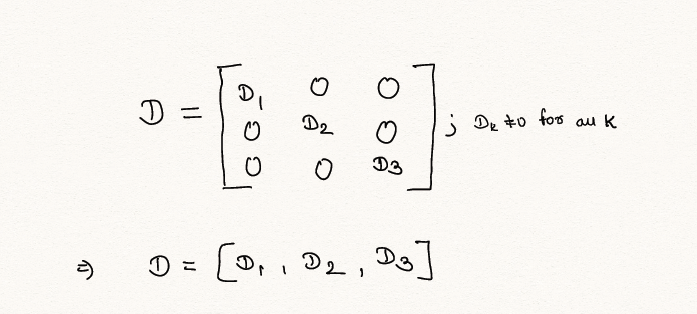 D = [ D₁ 0 0
0 D₂ 0
0 0 D₃ ] ; Dₖ ≠ 0 for all K
⇒ D = [D₁, D₂, D₃]